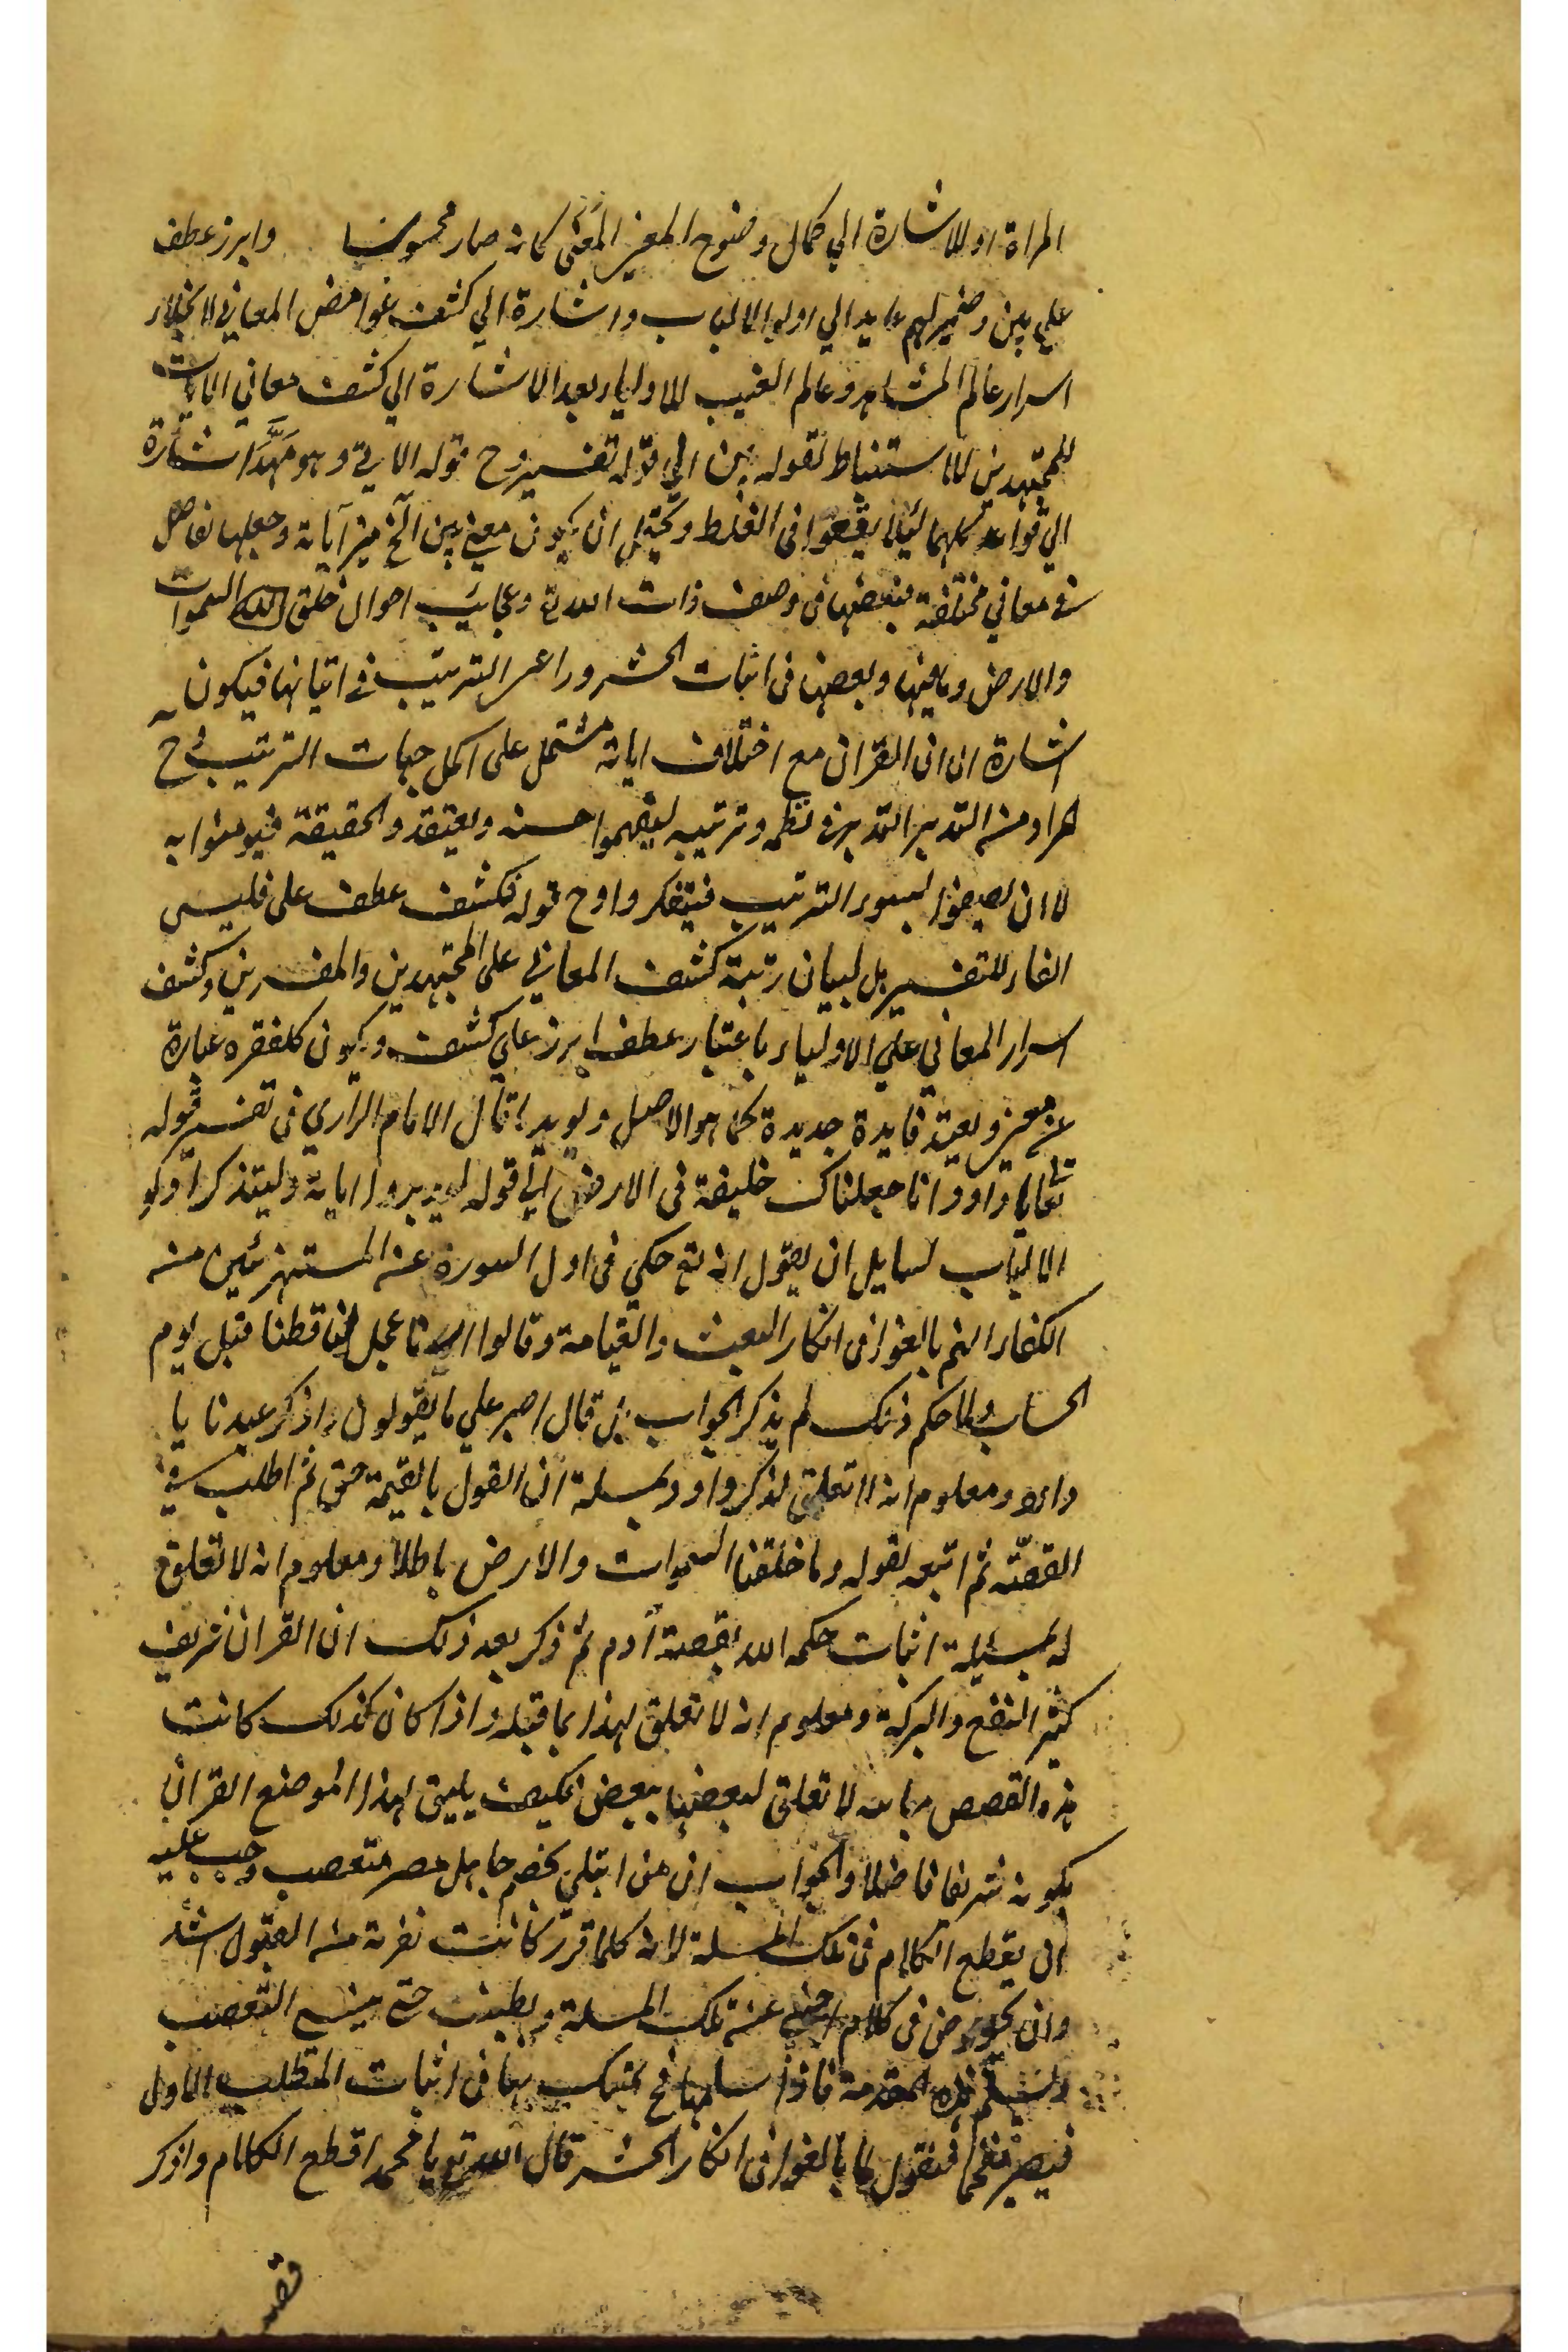 المراة او للاشارة الي كمال وضوح المعني المغنى كانه صار محسوسا وابرز عطف
علي بين وضمير لهم عايد الي اولو الالباب واشارة الي كشف غوامض المعاني لانجلاء
اسرار عالم المشاهد وعالم الغيب للاولياء بعد الاشارة الي كشف معاني الايات
للمجتهدين للاستنباط لقوله بين الي قوله تفسيره ح قوله الاتي وهو مهّد اشارة
الي قواعد كلهما ليلا يقعوا في الغلط ويحتمل ان يكون معني بين الخ ميز آياته وجعلها تفاصيل
في معاني مختلفة فبعضها في وصف ذات الله تع وعجائب احوال خلق الله السموات
والارض وما فيها وبعضها في اثبات الحشر وراعى الترتيب في اتيانها فيكون
اشارة الى ان القران مع اختلاف اياته مشتمل على اكمل جهات الترتيب ح
المراد منه التدبير التدبر في نظمه وترتيبه ليفهموا حسنه ويعتقدوا الحقيقة فيومنوا به
لا ان لسوء الترتيب فيتفكروا وح قوله فكشف عطف على فليس
الفاء للتفسير بل لبيان رتبة كشف المعاني على المجتهدين والمفسرين وكشف
اسرار المعاني علي الاولياء باعتبار عطف ابرز علي كشف ويكون كلفقره عبارة
عن معني ويفيد فايدة جديدة كما هو الاصل ويويد ما قال الامام الرازي في تفسير قوله
تعالي يا داود انا جعلناك خليفة في الارض الي قوله ليدبروا اياته وليتذكر اولو
الالباب لسايل ان يقول انه تع حكي في اول السورة عن المستهزئين من
الكفار انهم بالغوا في انكار البعث والقيامة وقالوا ربنا عجل لنا قطنا قبل يوم
الحساب ولما حكم ذلك لم يذكر الجواب بل قال اصبر علي ما يقولون واذكر عبدنا يا
داود ومعلوم انه لا تعلق لذكر داود بمسلة ان القول بالقيمة حق ثم اطلب في
القصّة ثم اتبعه بقوله وما خلقنا السموات والارض باطلا ومعلوم انه لا تعلق
له بمسيلة اثبات حكمه الله بقصة آدم ثم ذكر بعد ذلك ان القران شريف
كثير النفع والبركة ومعلوم انه لا تعلق لهذا بما قبله واذا كان كذلك كانت
هذه القصص متباينه لا تعلق لبعضها ببعض فكيف يليق لهذا الموضع القران
بكونه شريفا فاضلا والجواب ان من ابتلي بخصم جاهل مصر متعصب وجب عليه
ان يقطع الكلام في تلك المسلة لانه كلما قرر كانت نفرته من القبول اشد
وان يخوض في كلام اجنبي عن تلك المسلة ويطنب حتى ينسى التعصب
ويسلم هذه المقدمة فاذا سلمها فح يتمسك بها في اثبات المطلب الاول
فيصير مفحما فنقول لما بالغوا في انكار الحشر قال الله تع يا محمد اقطع الكلام واذكر
قصه